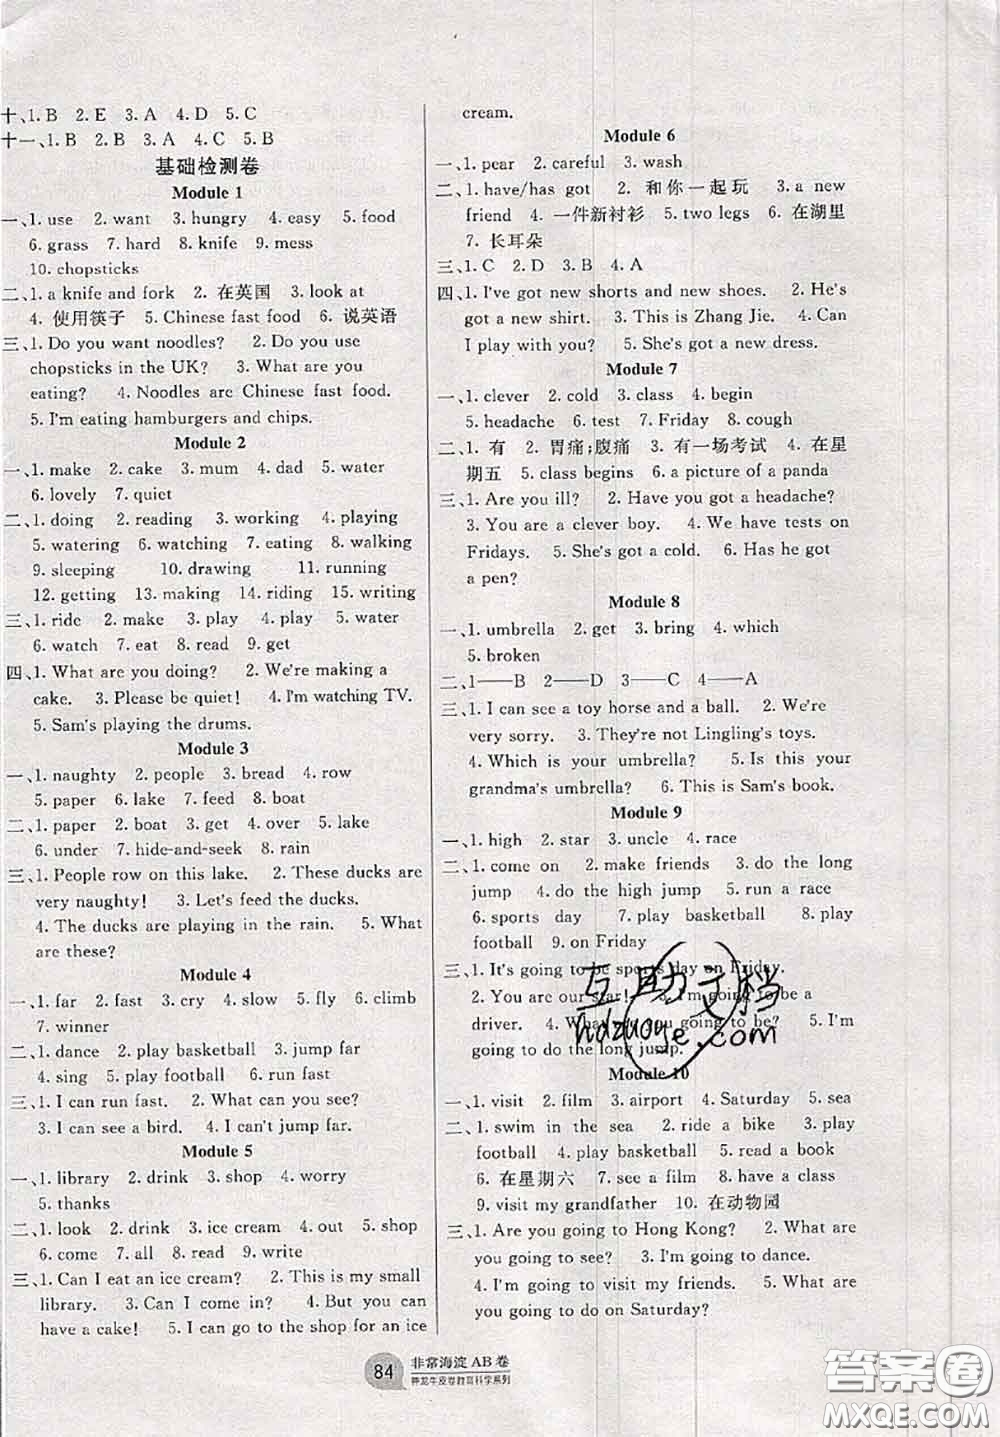 十、1. B 2. E 3. A 4. D 5. C
十一、1. B 2. B 3. A 4. C 5. B
基础检测卷
Module 1
一、1. use 2. want 3. hungry 4. easy 5. food
6. grass 7. hard 8. knife 9. mess
10. chopsticks
二、1. a knife and fork 2. 在英国 3. look at
4. 使用筷子 5. Chinese fast food 6. 说英语
三、1. Do you want noodles? 2. Do you use
chopsticks in the UK? 3. What are you
eating? 4. Noodles are Chinese fast food.
5. I'm eating hamburgers and chips.
Module 2
一、1. make 2. cake 3. mum 4. dad 5. water
6. lovely 7. quiet
二、1. doing 2. reading 3. working 4. playing
5. watering 6. watching 7. eating 8. walking
9. sleeping 10. drawing 11. running
12. getting 13. making 14. riding 15. writing
三、1. ride 2. make 3. play 4. play 5. water
6. watch 7. eat 8. read 9. get
四、1. What are you doing? 2. We're making a
cake. 3. Please be quiet! 4. I'm watching TV.
5. Sam's playing the drums.
Module 3
一、1. naughty 2. people 3. bread 4. row
5. paper 6. lake 7. feed 8. boat
二、1. paper 2. boat 3. get 4. over 5. lake
6. under 7. hide-and-seek 8. rain
三、1. People row on this lake. 2. These ducks are
very naughty! 3. Let's feed the ducks.
4. The ducks are playing in the rain. 5. What
are these?
Module 4
一、1. far 2. fast 3. cry 4. slow 5. fly 6. climb
7. winner
二、1. dance 2. play basketball 3. jump far
4. sing 5. play football 6. run fast
三、1. I can run fast. 2. What can you see?
3. I can see a bird. 4. I can't jump far.
Module 5
一、1. library 2. drink 3. shop 4. worry
5. thanks
二、1. look 2. drink 3. ice cream 4. out 5. shop
6. come 7. all 8. read 9. write
三、1. Can I eat an ice cream? 2. This is my small
library. 3. Can I come in? 4. But you can
have a cake! 5. I can go to the shop for an ice
cream.
Module 6
一、1. pear 2. careful 3. wash
二、1. have/has got 2. 和你一起玩 3. a new
friend 4. 一件新衬衫 5. two legs 6. 在湖里
7. 长耳朵
三、1. C 2. D 3. B 4. A
四、1. I've got new shorts and new shoes. 2. He's
got a new shirt. 3. This is Zhang Jie. 4. Can
I play with you? 5. She's got a new dress.
Module 7
一、1. clever 2. cold 3. class 4. begin
5. headache 6. test 7. Friday 8. cough
二、1. 有 2. 胃痛;腹痛 3. 有一场考试 4. 在星
期五 5. class begins 6. a picture of a panda
三、1. Are you ill? 2. Have you got a headache?
3. You are a clever boy. 4. We have tests on
Fridays. 5. She's got a cold. 6. Has he got
a pen?
Module 8
一、1. umbrella 2. get 3. bring 4. which
5. broken
二、1——B 2——D 3——C 4——A
三、1. I can see a toy horse and a ball. 2. We're
very sorry. 3. They're not Lingling's toys.
4. Which is your umbrella? 5. Is this your
grandma's umbrella? 6. This is Sam's book.
Module 9
一、1. high 2. star 3. uncle 4. race
二、1. come on 2. make friends 3. do the long
jump 4. do the high jump 5. run a race
6. sports day 7. play basketball 8. play
football 9. on Friday
三、1. It's going to be sports day on Friday.
2. You are our star! 3. I'm going to be a
driver. 4. What are you going to be? 5. I'm
going to do the long jump.
Module 10
一、1. visit 2. film 3. airport 4. Saturday 5. sea
二、1. swim in the sea 2. ride a bike 3. play
football 4. play basketball 5. read a book
6. 在星期六 7. see a film 8. have a class
9. visit my grandfather 10. 在动物园
三、1. Are you going to Hong Kong? 2. What are
you going to see? 3. I'm going to dance.
4. I'm going to visit my friends. 5. What are
you going to do on Saturday?
互助文档
hdzuoye.com
84 非常海淀 AB 卷
神龙牛皮卷教育科学系列
答案卷
MXQE.COM